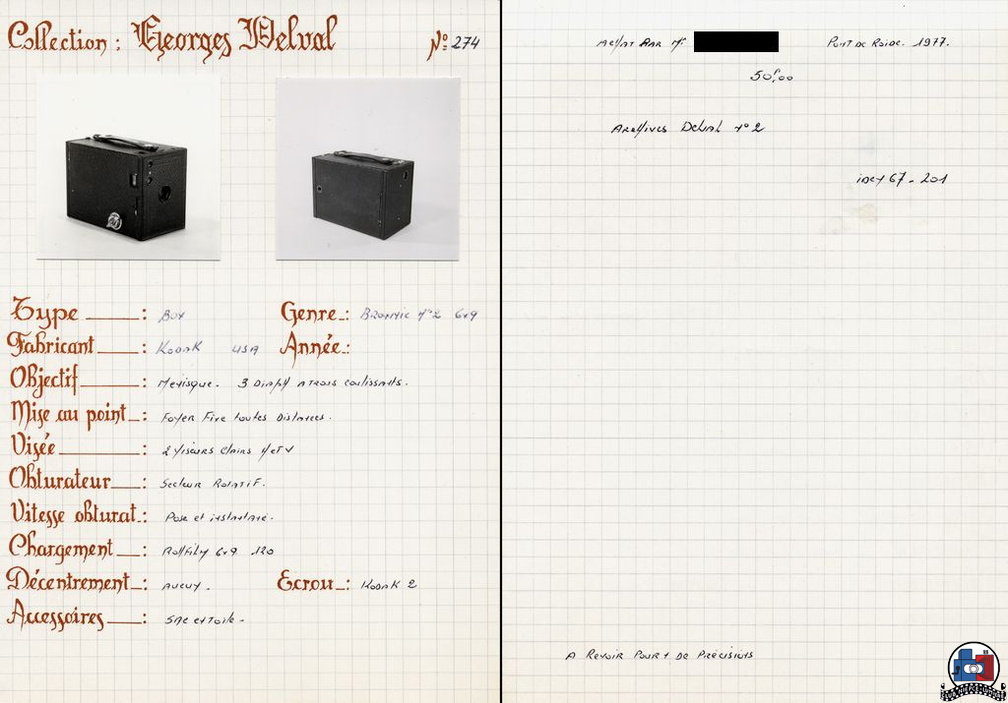 Collection : Georges Delval
N° 274
Type : Box
Genre : Brownie n°2 6x9
Fabricant : Kodak USA
Année :
Objectif : Menisque. 3 Diaph a trous coulissants.
Mise au point : Foyer Fixe toutes Distances.
Visée : 2 Viseurs clairs H et V
Obturateur : Secteur Rotatif.
Vitesse obturat : Pose et instantané.
Chargement : Rollfilm 6x9 120
Décentrement : Aucun.
Ecrou : Kodak 2
Accessoires : Sac en toile.
Achat par Mr
Pont de Roide. 1977.
50F,00
Archives Delval n° 2
67 - 201
A Revoir Pour + de Précisions